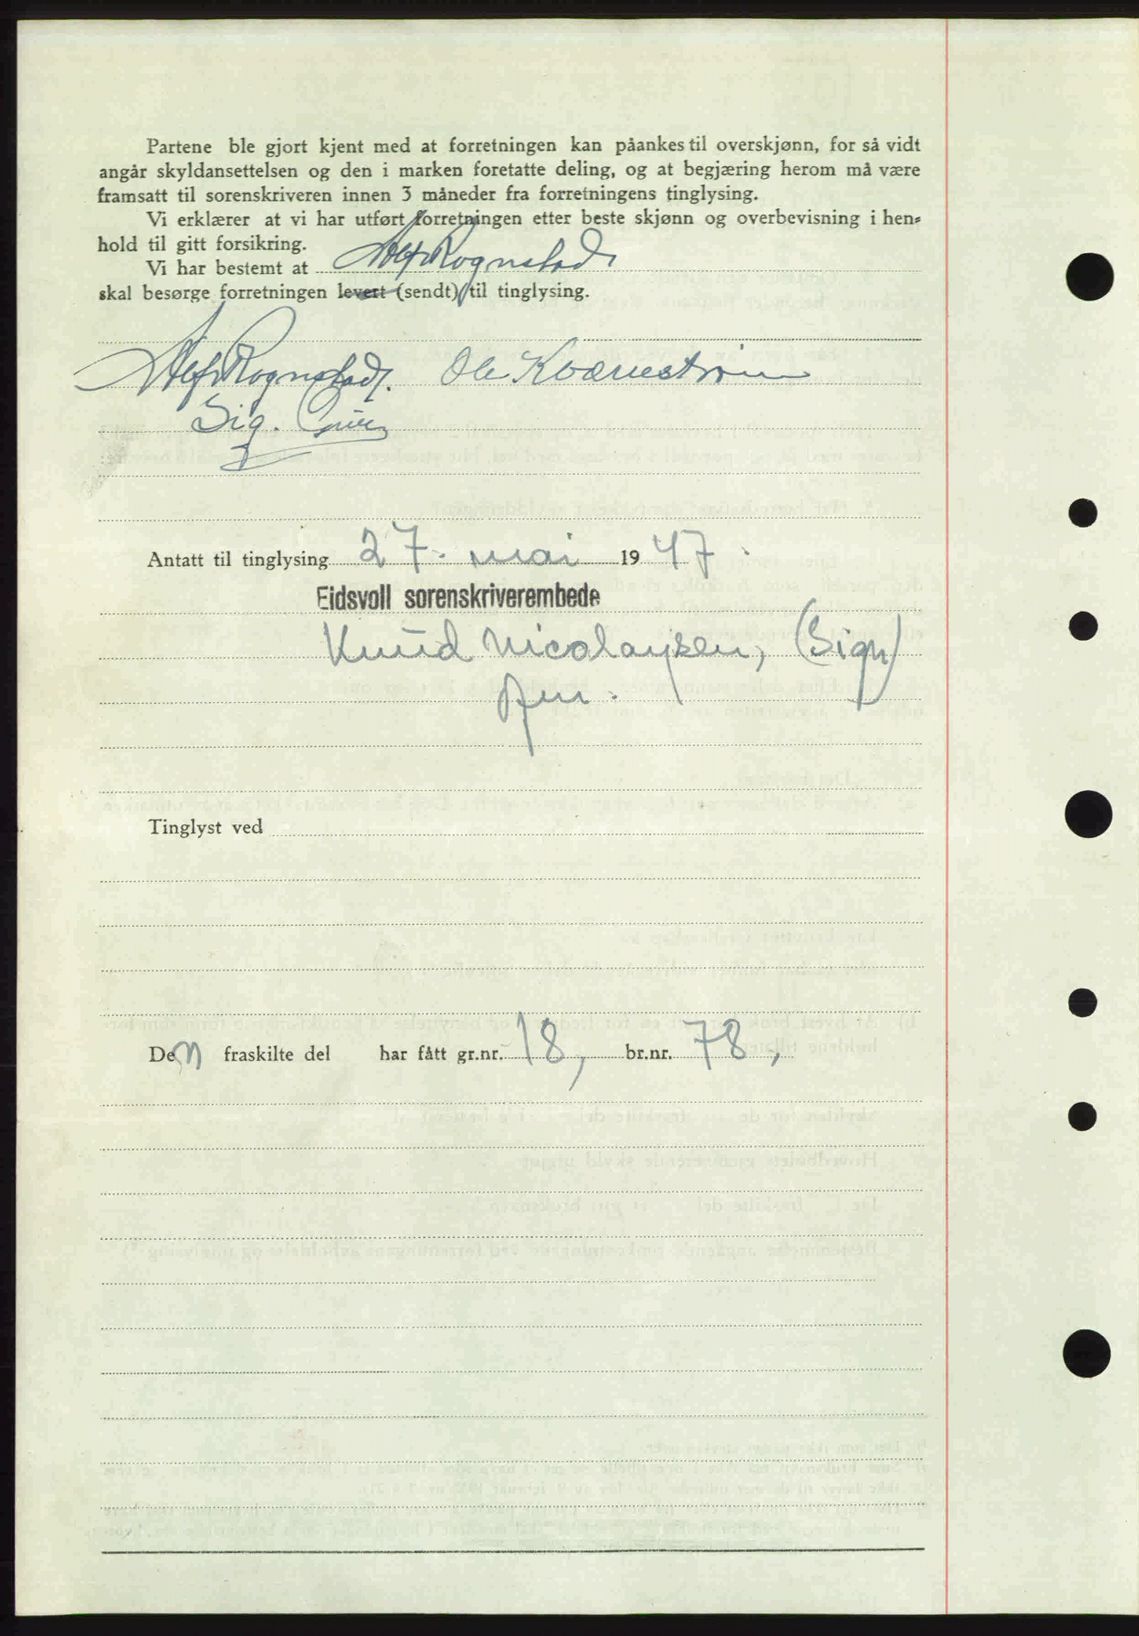 Partene ble gjort kjent med at forretningen kan påankes til overskjønn, for så vidt
angår skyldansettelsen og den i marken foretatte deling, og at begjæring herom må være
framsatt til sorenskriveren innen 3 måneder fra forretningens tinglysing.
Vi erklærer at vi har utført forretningen etter beste skjønn og overbevisning i hen-
hold til gitt forsikring.
Vi har bestemt at Alf Rognstad
skal besørge forretningen levert (sendt) til tinglysing.
Alf Rognstad. Ole Kværnestrøm
Sig.
Antatt til tinglysing 27. mai 1947.
Eidsvoll sorenskriverembede
Knud Nicolaysen, (Sign)
Tinglyst ved
Den fraskilte del har fått gr.nr. 18, br.nr. 78,